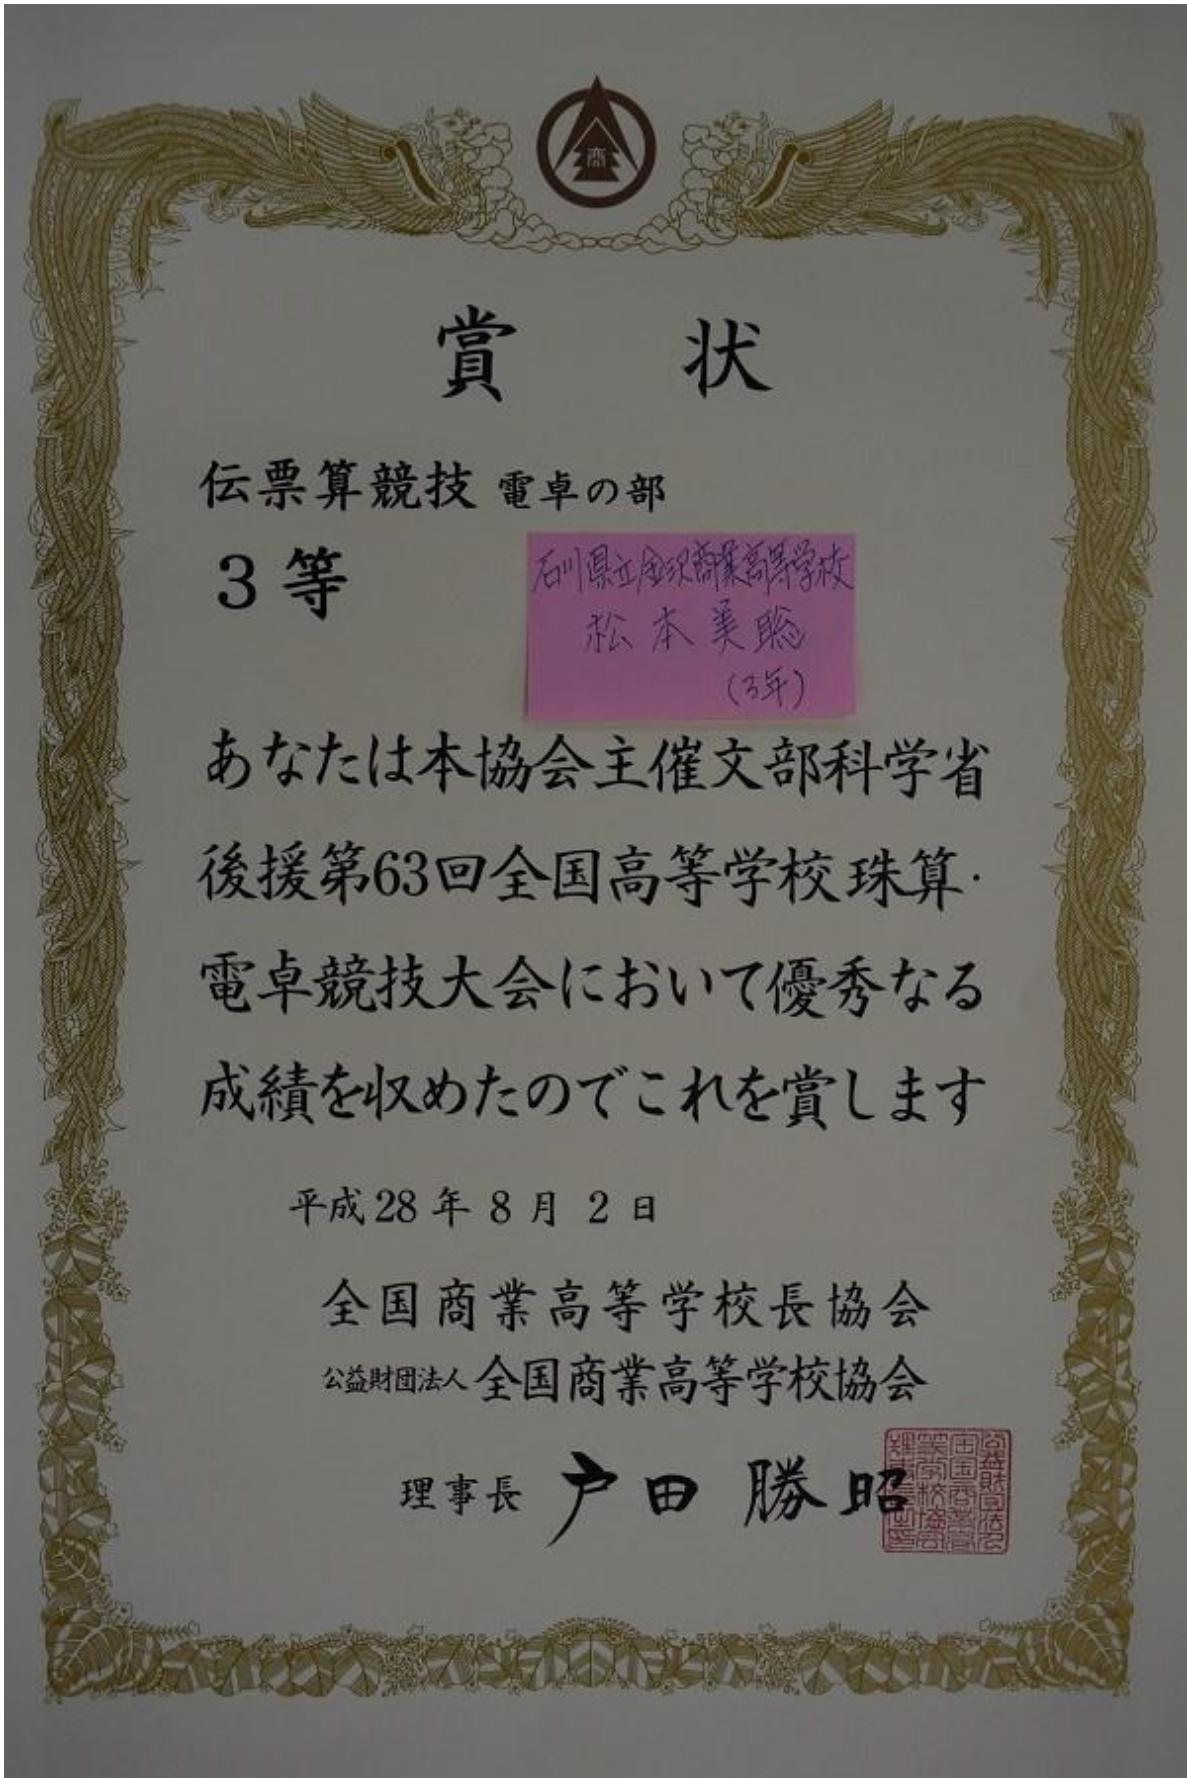 商
賞状
伝票算競技 電卓の部
3等
石川県立金沢商業高等学校
松本美聡
(3年)
あなたは本協会主催文部科学省
後援第63回全国高等学校珠算・
電卓競技大会において優秀なる
成績を収めたのでこれを賞します
平成28年8月2日
全国商業高等学校長協会
公益財団法人 全国商業高等学校協会
理事長 戸田勝昭